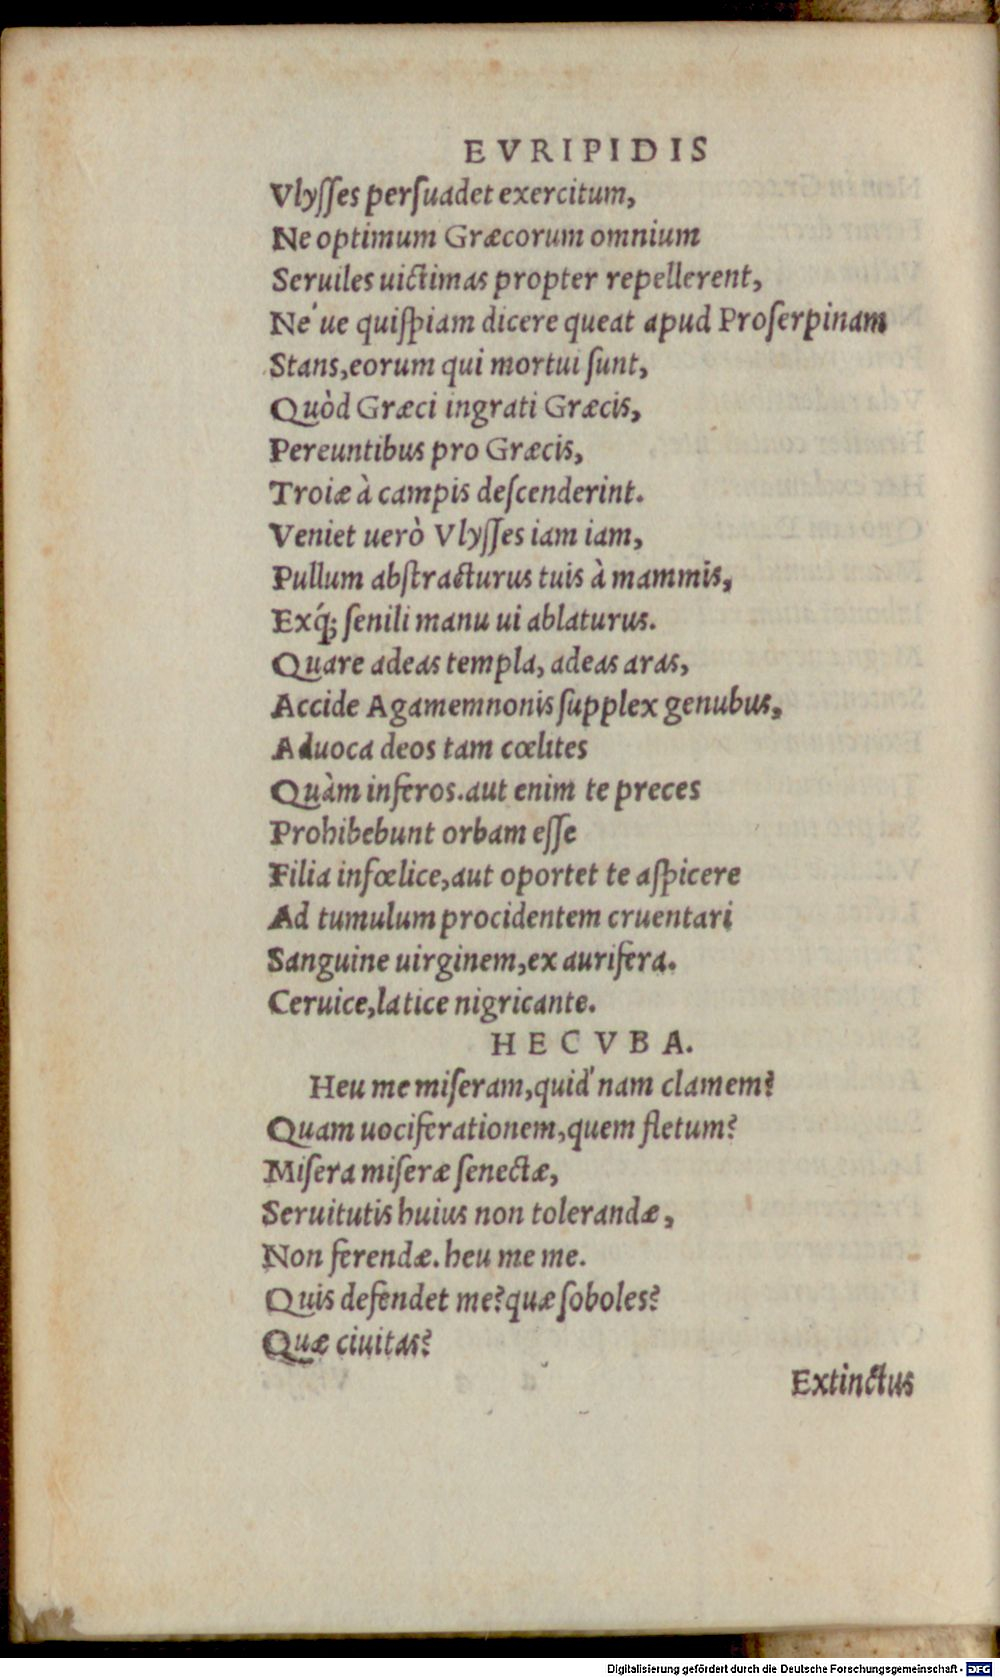 EVRIPIDIS
Vlyſſes perſuadet exercitum,
Ne optimum Græcorum omnium
Seruiles uictimas propter repellerent,
Ne´ue quiſpiam dicere queat apud Proſerpinam
Stans,eorum qui mortui ſunt,
Quòd Græci ingrati Græcis,
Pereuntibus pro Græcis,
Troiæ à campis deſcenderint.
Veniet uerò Vlyſſes iam iam,
Pullum abſtracturus tuis à mammis,
Exq́; ſenili manu ui ablaturus.
Quare adeas templa, adeas aras,
Accide Agamemnonis ſupplex genubus,
Aduoca deos tam cœlites
Quàm inferos.aut enim te preces
Prohibebunt orbam eſſe
Filia infœlice,aut oportet te aſpicere
Ad tumulum procidentem cruentari
Sanguine uirginem,ex aurifera.
Ceruice,latice nigricante.
HECVBA.
Heu me miſeram,quid'nam clamem?
Quam uociferationem,quem fletum?
Miſera miſeræ ſenectæ,
Seruitutis huius non tolerandæ,
Non ferendæ.heu me me.
Quis defendet me?quæ ſoboles?
Quæ ciuitas?
Extinctus
Digitalisierung gefördert durch die Deutsche Forschungsgemeinschaft - DFG